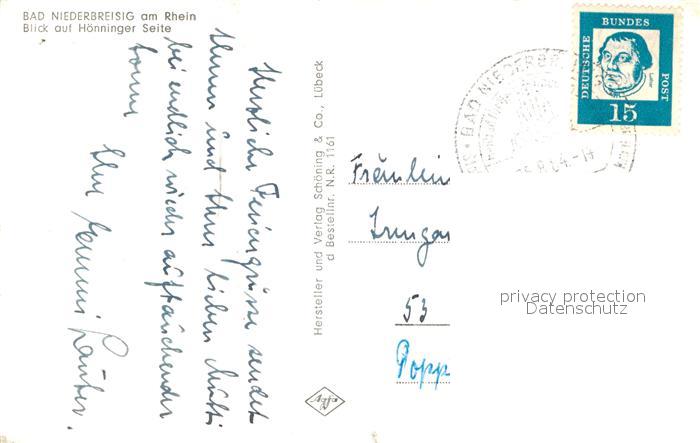 BAD NIEDERBREISIG am Rhein
Blick auf Hönninger Seite
Herzliche Feriengrüsse sendet
Ihnen und Ihrer lieben Mutti
bei endlich wieder auftauchender
Sonne
Ihre
Hersteller und Verlag Schöning & Co., Lübeck
d Bestellnr. N.R. 1161
Agfa
DEUTSCHE BUNDES POST
Luther
15
BAD NIEDERBR
Fräulein
Irmgar
53
Popp
privacy protection
Datenschutz